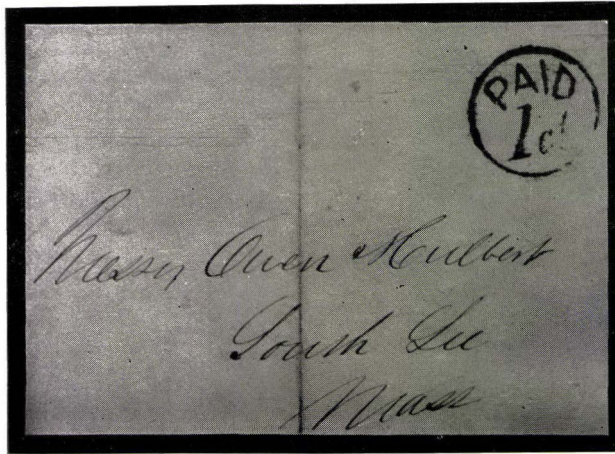 PAID
1 ct
Messrs Owen & Hulbert
South Lee
Mass